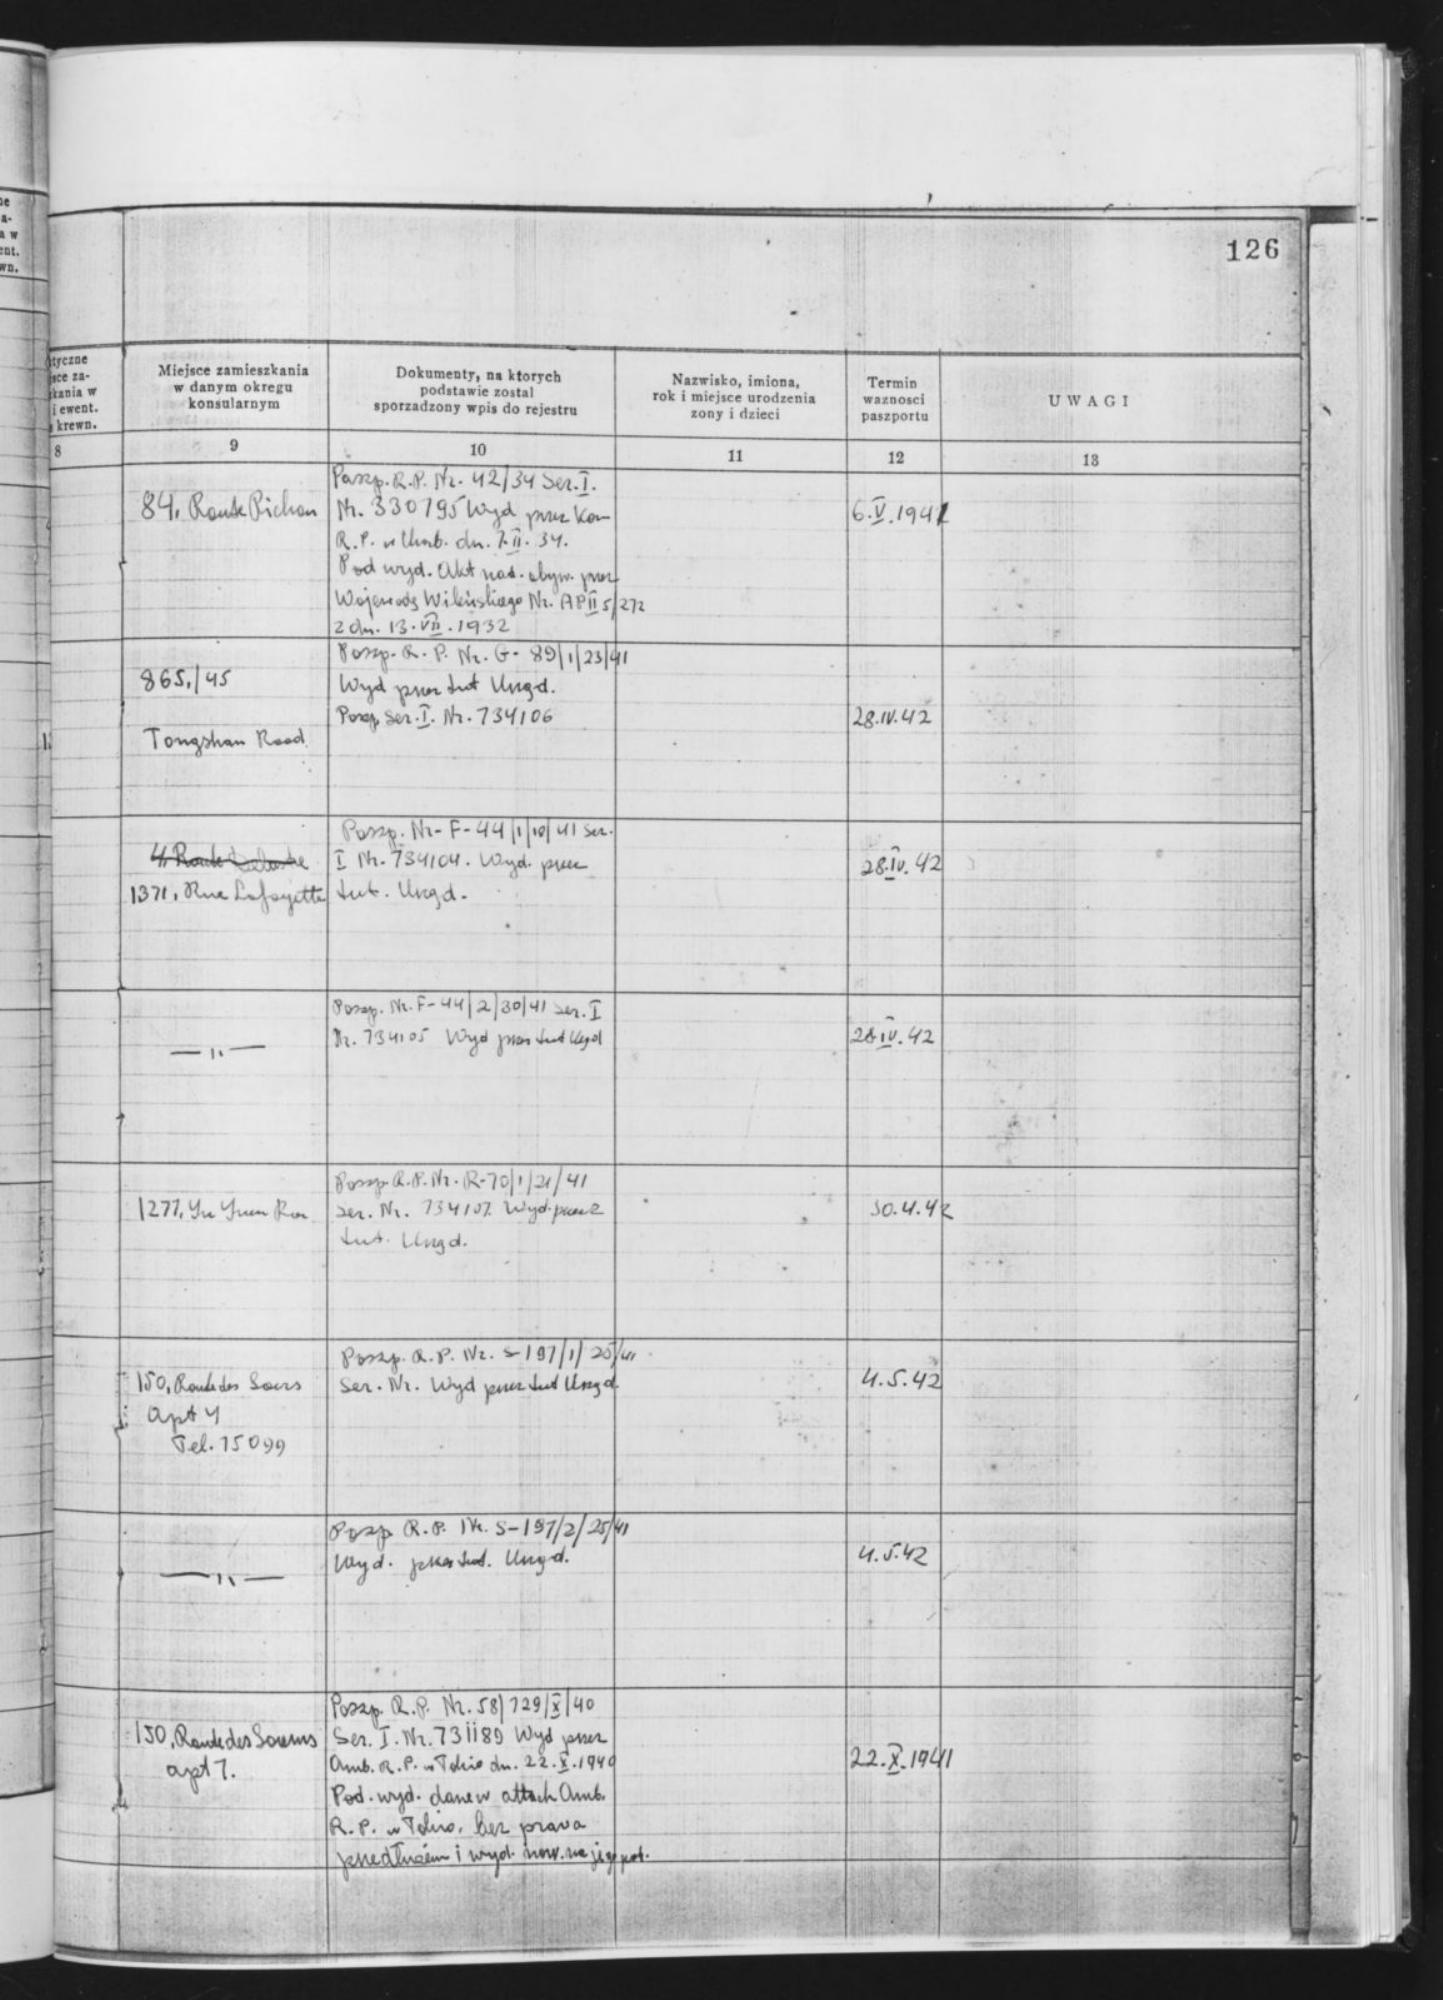 126
ne
a-
a w
ent.
wn.
tyczne
sce za-
kania w
i ewent.
krewn.
Miejsce zamieszkania
w danym okregu
konsularnym
Dokumenty, na ktorych
podstawie zostal
sporzadzony wpis do rejestru
Nazwisko, imiona,
rok i miejsce urodzenia
zony i dzieci
Termin
waznosci
paszportu
UWAGI
8
9
10
11
12
13
84, Route Pichon
Paszp. R.P. Nr. 42/34 Ser. I.
Nr. 330795 Wyd przez Kon
R.P. w Charb. dn. 7.II. 34.
Pod wyd. Akt nad. obyw. przez
Wojewodę Wileńskiego Nr. AP II 5/272
z dn. 13. VII. 1932
6.V.1941
865/45
Tongshan Road
Paszp. R. P. Nr. G- 89/1/23/41
Wyd przez tut Urzęd.
Paszp Ser. I. Nr. 734106
28.IV.42
1371, Rue Lafayette
Paszp. Nr- F-44/1/10/41 Ser.
I Nr. 734104. Wyd. przez
tut. Urzęd.
28.IV.42
—〃—
Paszp. Nr. F-44/2/30/41 Ser. I
Nr. 734105 Wyd przez tut Urzęd
28 IV. 42
1277, Yu Yuen
Paszp. R.P. Nr. R-70/1/21/41
Ser. Nr. 734107. Wyd. przez
tut. Urzęd.
30.4.42
150, Route des
Apt 4
Tel. 75099
Paszp. R. P. Nr. S-197/1/25/41
Ser. Nr. Wyd przez tut Urzęd.
4.5.42
—〃—
Paszp R.P. Nr. S-197/2/25/41
Wyd. przez tut. Urzęd.
4.5.42
150, Route des
apt 7.
Paszp. R.P. Nr. 58/729/X/40
Ser. I. Nr. 731189 Wyd przez
Amb. R.P. w Tokio dn. 22.X.1940
Pod. wyd. dane w aktach Amb.
R.P. w Tokio, bez prawa
przedłużen i wyd. now. na jego pod.
22.X.1941